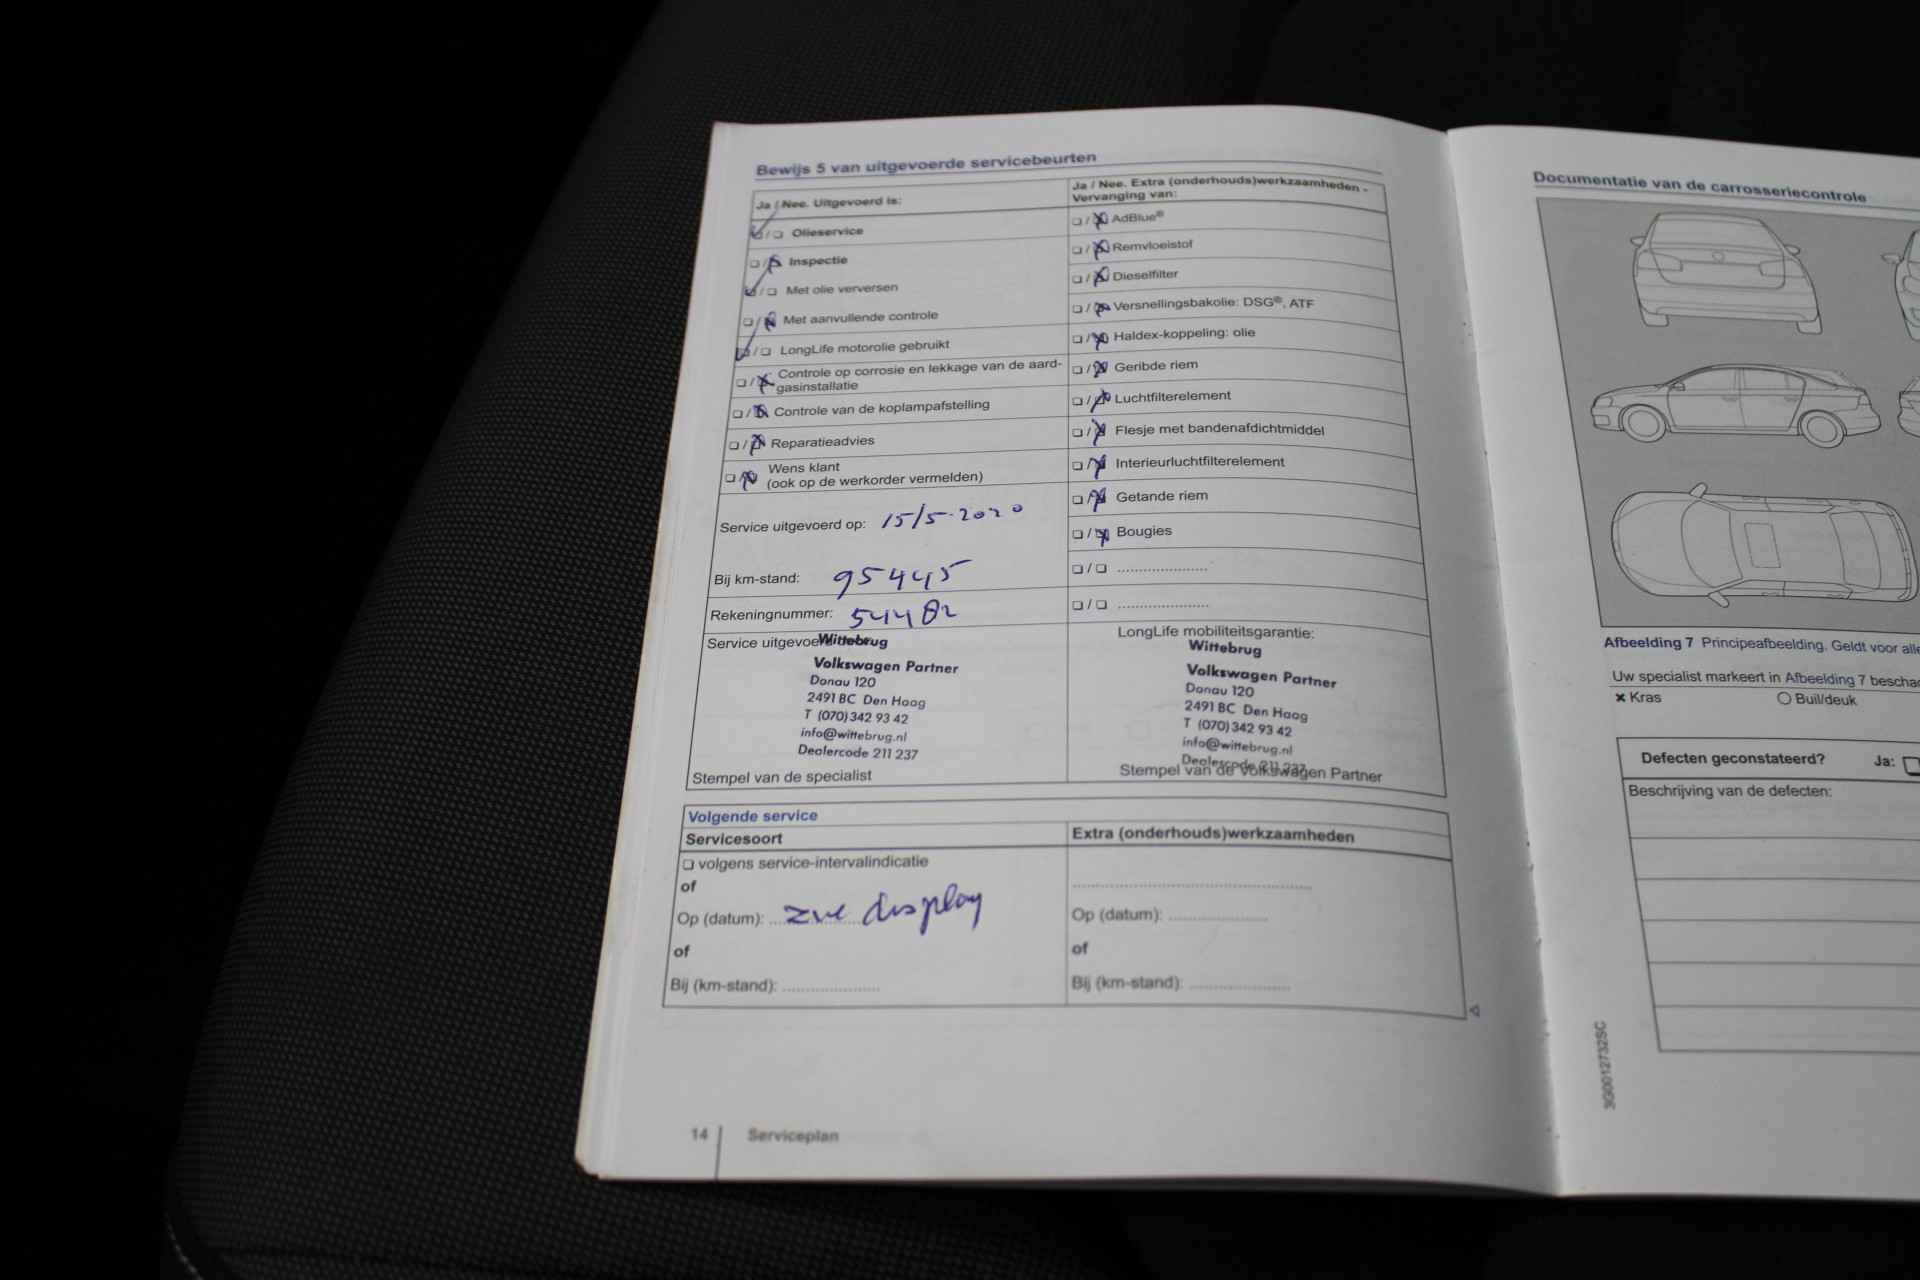 Bewijs 5 van uitgevoerde servicebeurten
Ja / Nee. Uitgevoerd is:
❏ / ❏ Olieservice
❏ / ❏ Inspectie
❏ / ❏ Met olie verversen
❏ / ❏ Met aanvullende controle
❏ / ❏ LongLife motorolie gebruikt
❏ / ❏ Controle op corrosie en lekkage van de aard-
gasinstallatie
❏ / ❏ Controle van de koplampafstelling
❏ / ❏ Reparatieadvies
❏ / ❏ Wens klant
(ook op de werkorder vermelden)
Service uitgevoerd op: 15/5-2020
Bij km-stand: 95445
Rekeningnummer: 54482
Service uitgevoerd door:
Wittebrug
Volkswagen Partner
Donau 120
2491 BC Den Haag
T (070) 342 93 42
info@wittebrug.nl
Dealercode 211 237
Stempel van de specialist
Ja / Nee. Extra (onderhouds)werkzaamheden -
Vervanging van:
❏ / ❏ AdBlue®
❏ / ❏ Remvloeistof
❏ / ❏ Dieselfilter
❏ / ❏ Versnellingsbakolie: DSG®, ATF
❏ / ❏ Haldex-koppeling: olie
❏ / ❏ Geribde riem
❏ / ❏ Luchtfilterelement
❏ / ❏ Flesje met bandenafdichtmiddel
❏ / ❏ Interieurluchtfilterelement
❏ / ❏ Getande riem
❏ / ❏ Bougies
❏ / ❏ ....................
❏ / ❏ ....................
LongLife mobiliteitsgarantie:
Wittebrug
Volkswagen Partner
Donau 120
2491 BC Den Haag
T (070) 342 93 42
info@wittebrug.nl
Dealercode 211 237
Stempel van de Volkswagen Partner
Volgende service
Servicesoort
❏ volgens service-intervalindicatie
of
Op (datum): zie display
of
Bij (km-stand): ....................
Extra (onderhouds)werkzaamheden
..................................................
Op (datum): ....................
of
Bij (km-stand): ....................
14 Serviceplan
Documentatie van de carrosseriecontrole
Afbeelding 7 Principeafbeelding. Geldt voor alle
Uw specialist markeert in Afbeelding 7 bescha
✖ Kras ○ Buil/deuk
Defecten geconstateerd? Ja: ❏
Beschrijving van de defecten:
3G0012732SC